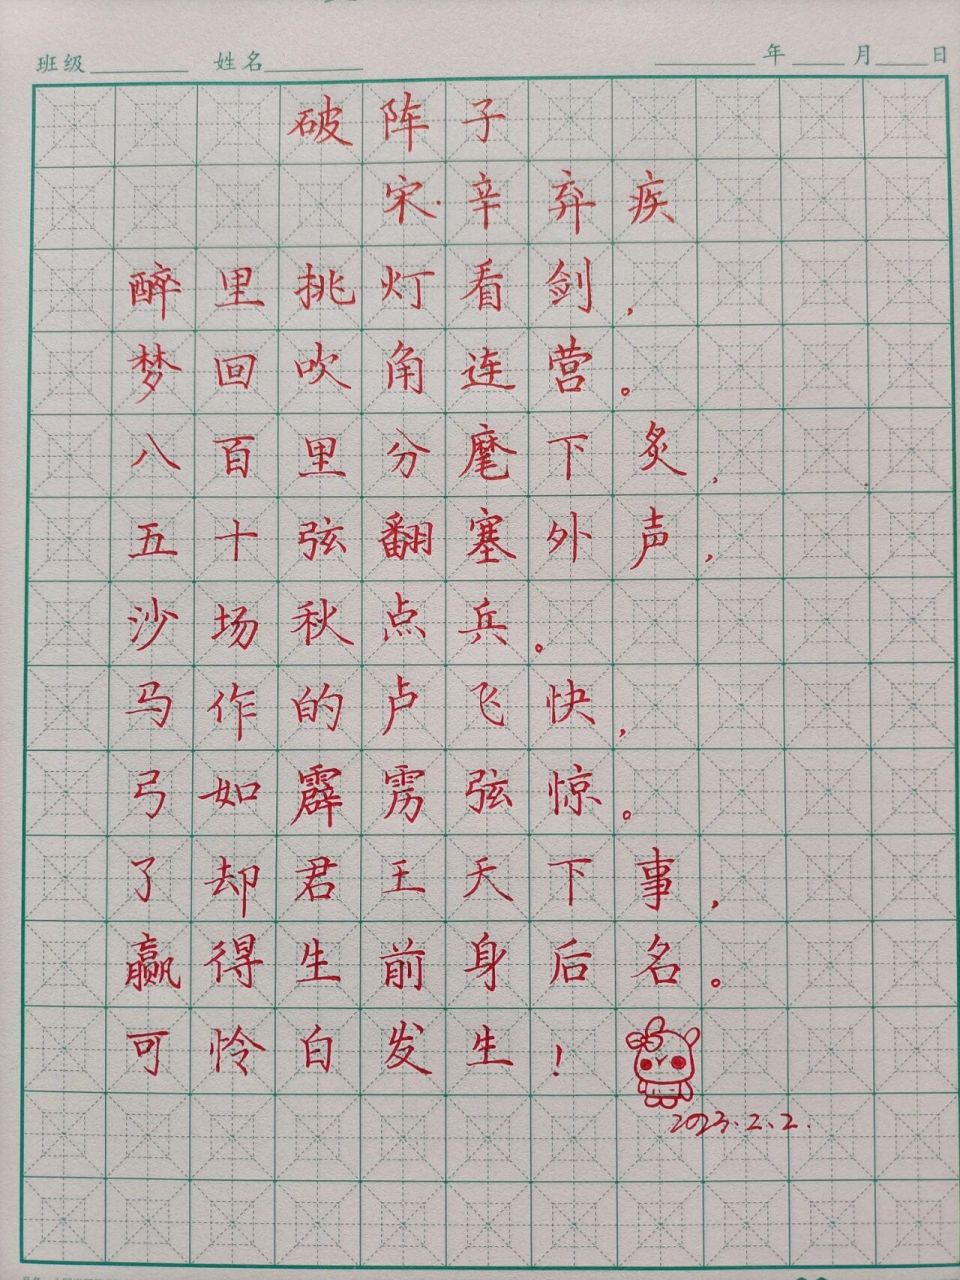 班级 姓名 年 月 日
破阵子
宋·辛弃疾
醉里挑灯看剑，
梦回吹角连营。
八百里分麾下炙，
五十弦翻塞外声，
沙场秋点兵。
马作的卢飞快，
弓如霹雳弦惊。
了却君王天下事，
赢得生前身后名。
可怜白发生！
2023.2.2.